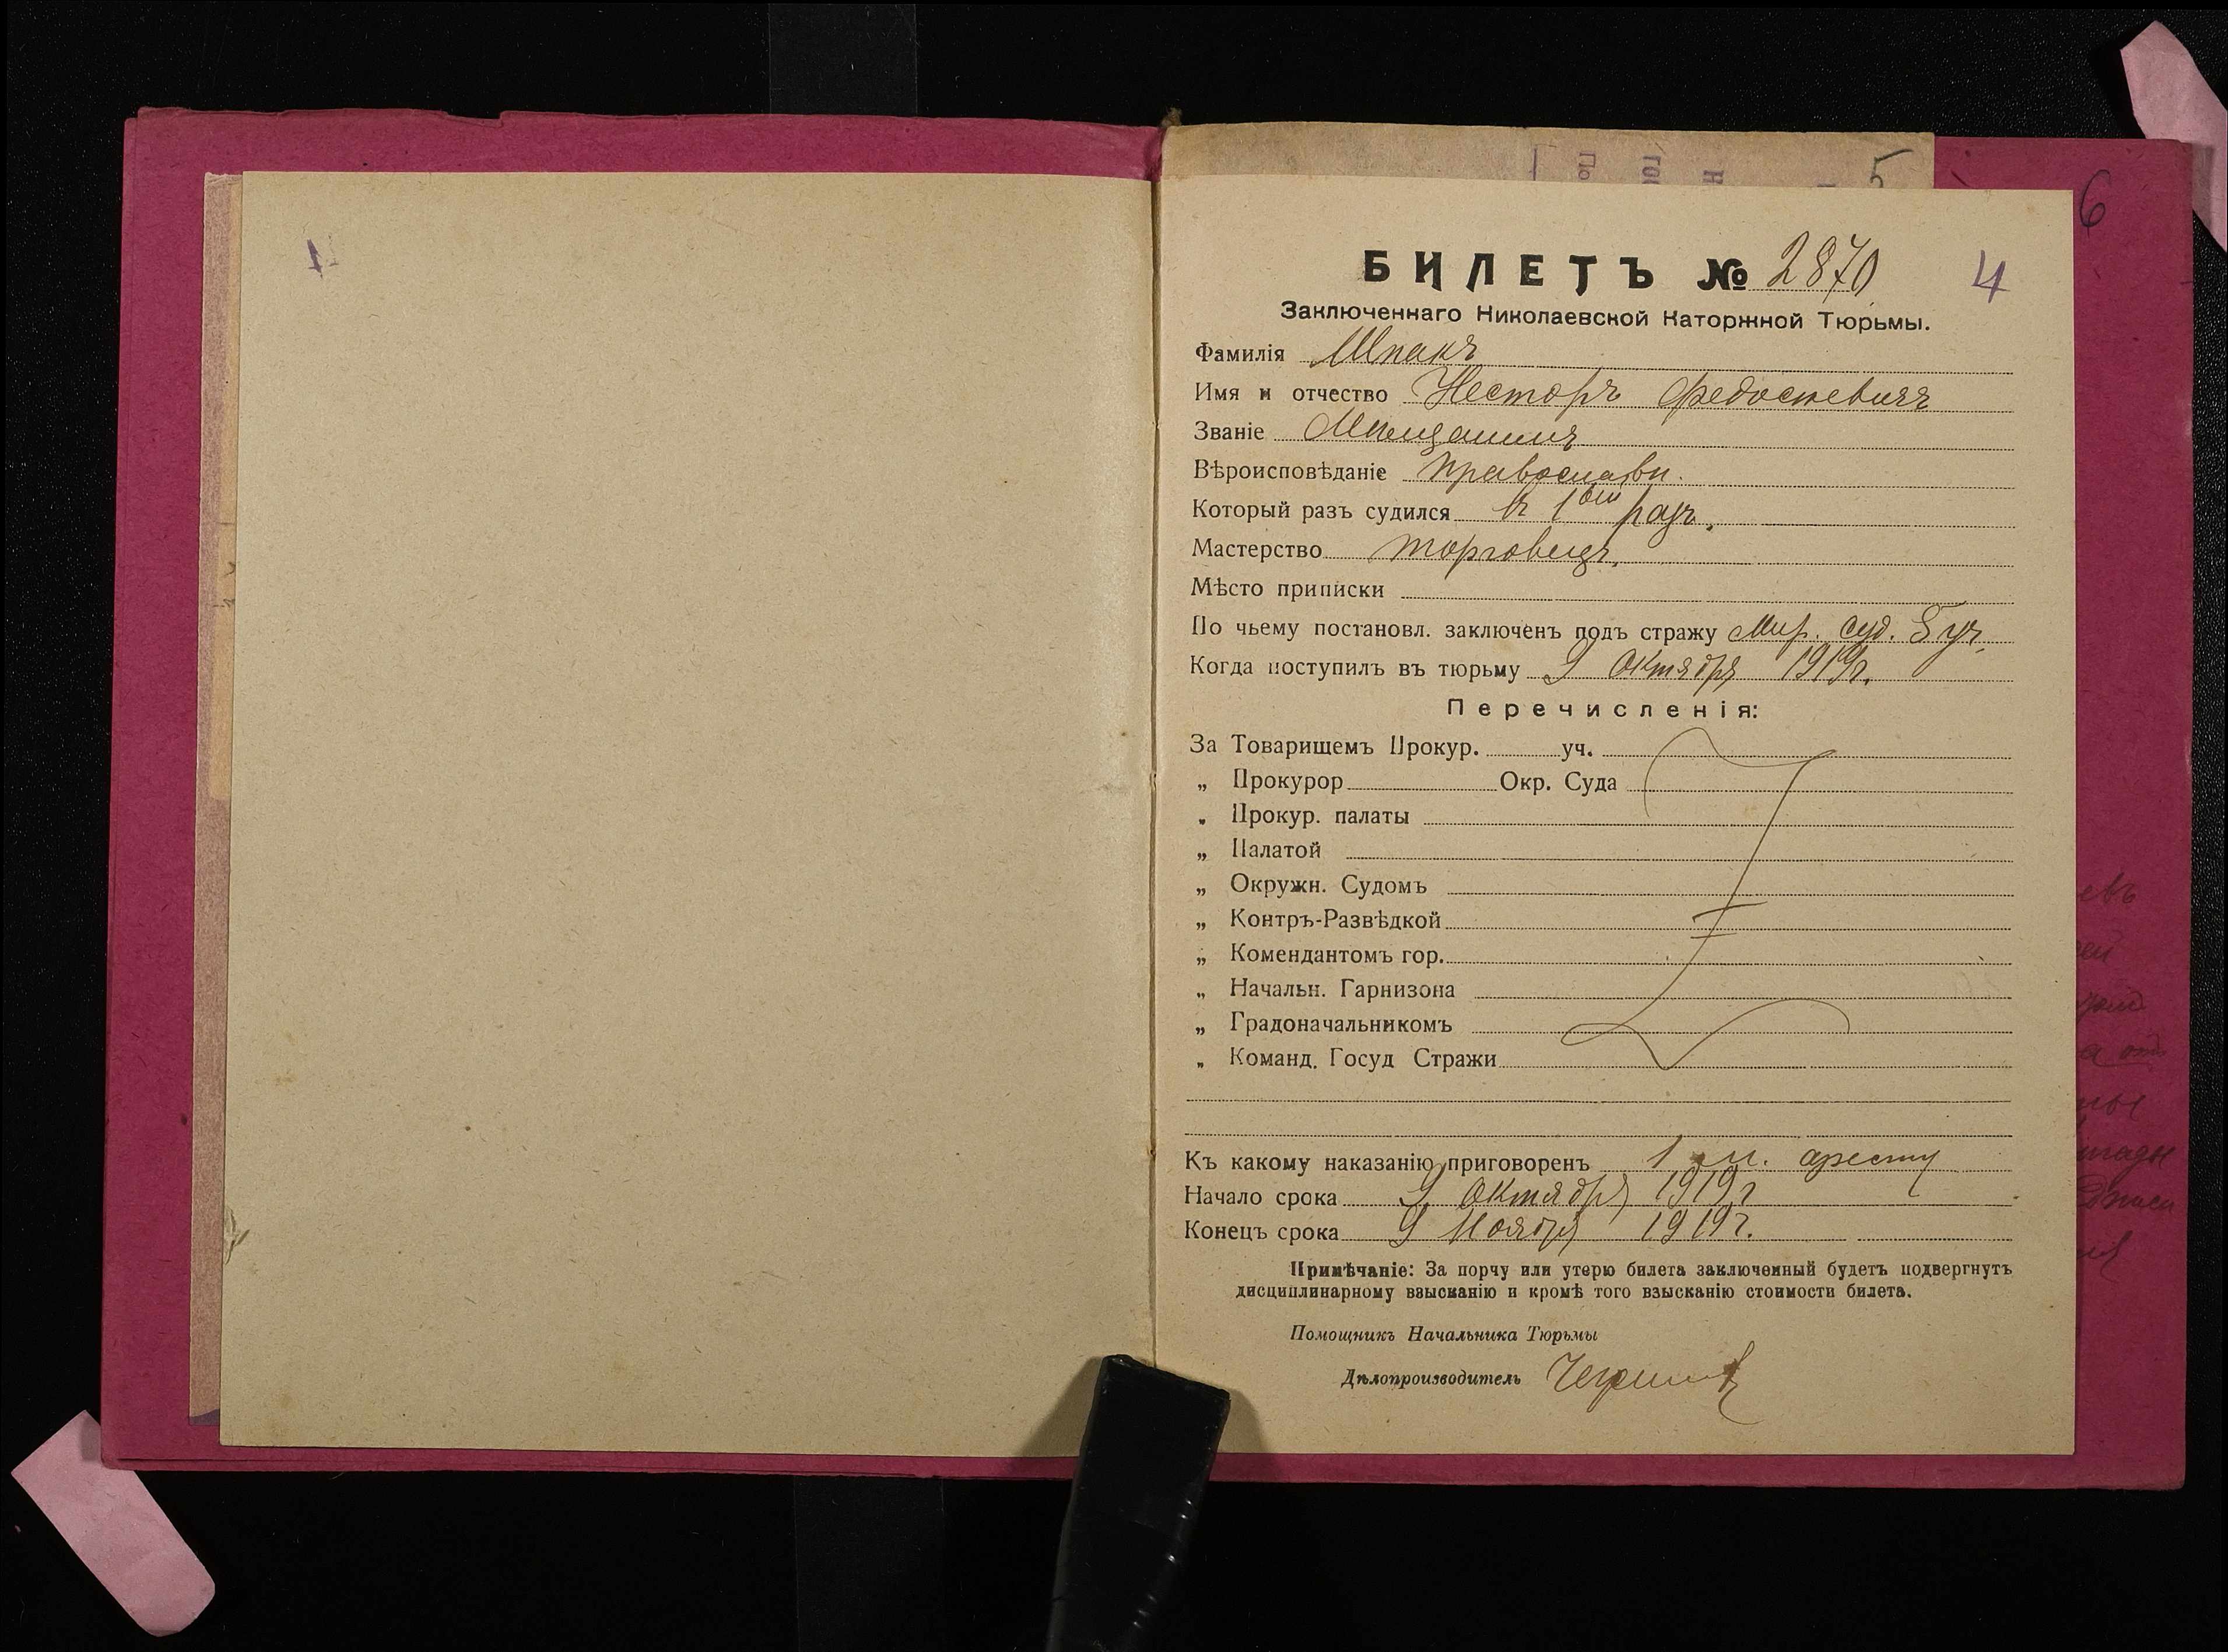 5
6
БИЛЕТЪ № 2870
4
Заключеннаго Николаевской Каторжной Тюрьмы.
Фамилія Шпакъ
Имя и отчество Несторъ Федосѣевичъ
Званіе Мѣщанинъ
Вѣроисповѣданіе православн.
Который разъ судился въ 1ый разъ.
Мастерство торговецъ.
Мѣсто приписки
По чьему постановл. заключенъ подъ стражу Мир. Суд. 8 уч.
Когда поступилъ въ тюрьму 9 Октября 1919г.
Перечисленія:
За Товарищемъ Прокур. уч.
„ Прокурор Окр. Суда
„ Прокур. палаты
„ Палатой
„ Окружн. Судомъ
„ Контръ-Развѣдкой
„ Комендантомъ гор.
„ Начальн. Гарнизона
„ Градоначальникомъ
„ Команд. Госуд Стражи
Къ какому наказанію приговоренъ 1 м. аресту
Начало срока 9 Октября 1919г
Конецъ срока 9 Ноября 1919г.
Примѣчаніе: За порчу или утерю билета заключенный будетъ подвергнутъ
дисциплинарному взысканію и кромѣ того взысканію стоимости билета.
Помощникъ Начальника Тюрьмы
Дѣлопроизводитель